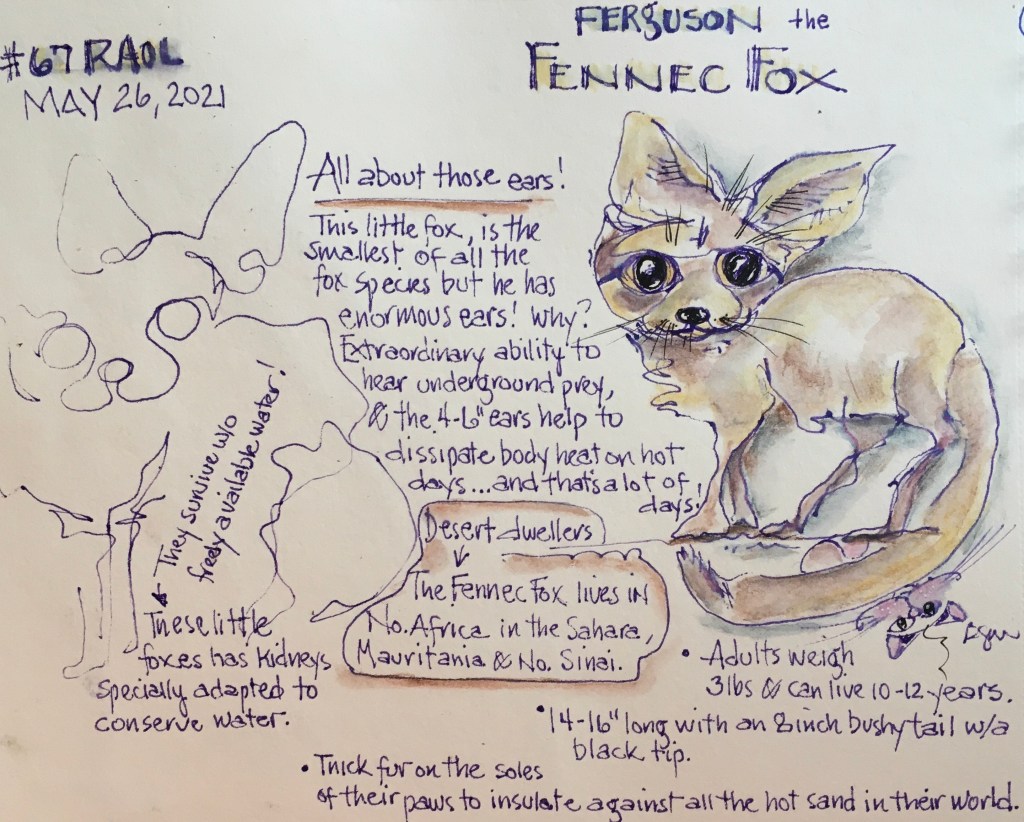 #67 RAOL
MAY 26, 2021
FERGUSON the
FENNEC FOX
All about those ears!
This little fox, is the
smallest of all the
fox species but he has
enormous ears! Why?
Extraordinary ability to
hear underground prey,
& the 4-6" ears help to
dissipate body heat on hot
days...and that's a lot of
days!
They survive w/o
freely available water!
These little
foxes has kidneys
specially adapted to
conserve water.
Desert dwellers
The Fennec Fox lives in
No. Africa in the Sahara,
Mauritania & No. Sinai.
• Adults weigh
3lbs & can live 10-12 years.
• 14-16" long with an 8 inch bushy tail w/a
black tip.
• Thick fur on the soles
of their paws to insulate against all the hot sand in their world.